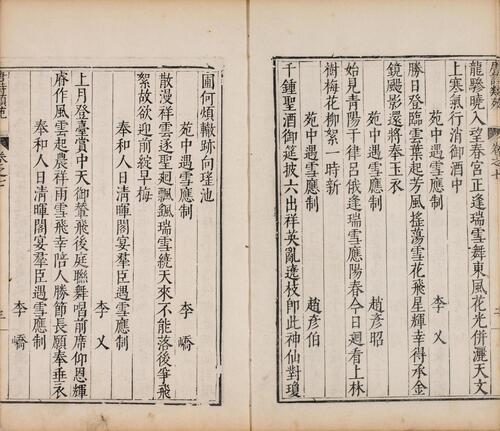 龍驂曉入望春宮正逢瑞雪舞東風花光併灑天文
上寒氣行消御酒中
苑中遇雪應制
李乂
勝日登臨雲葉起芳風搖蕩雪花飛星輝幸得承金
鏡颺影還將奉玉衣
苑中遇雪應制
趙彥昭
始見青陽干律呂俄逢瑞雪應陽春今日迴看上林
樹梅花柳絮一時新
苑中遇雪應制
趙彥伯
千鍾聖酒御筵披六出祥英亂遶枝即此神仙對瓊
圃何煩轍跡向瑤池
苑中遇雪應制
李嶠
散漫祥雲逐聖迴飄颻瑞雪繞天來不能落後爭飛
絮故欲迎前綻早梅
奉和人日清暉閣宴羣臣遇雪應制
李乂
上月登臺賞中天御輦飛後庭聯舞唱前席仰恩輝
睿作風雲起農祥雨雪飛幸陪人勝節長願奉垂衣
奉和人日清暉閣宴羣臣遇雪應制
李嶠